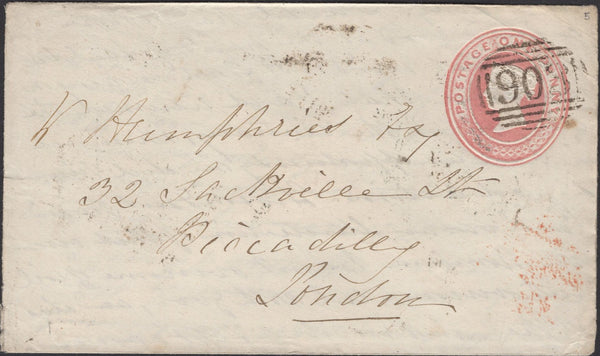 POSTAGE ONE PENNY
190
W Humphries Esq
32 Sackville St
Piccadilly
London